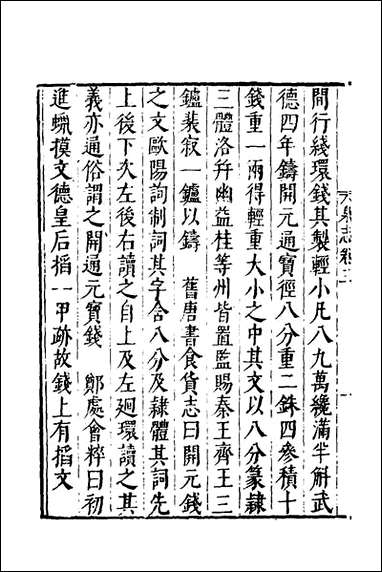 間行綫環錢其製輕小凡八九萬纔滿半斛武
德四年鑄開元通寶徑八分重二銖四參積十
錢重一兩得輕重大小之中其文以八分篆隸
三體洛幷幽益桂等州皆置監賜秦王齊王三
鑪裴寂一鑪以鑄　舊唐書食貨志曰開元錢
之文歐陽詢制詞其字含八分及隸體其詞先
上後下次左後右讀之自上及左廻環讀之其
義亦通俗謂之開通元寶錢　鄭虔會粹曰初
進蠟摸文德皇后搯一甲跡故錢上有搯文